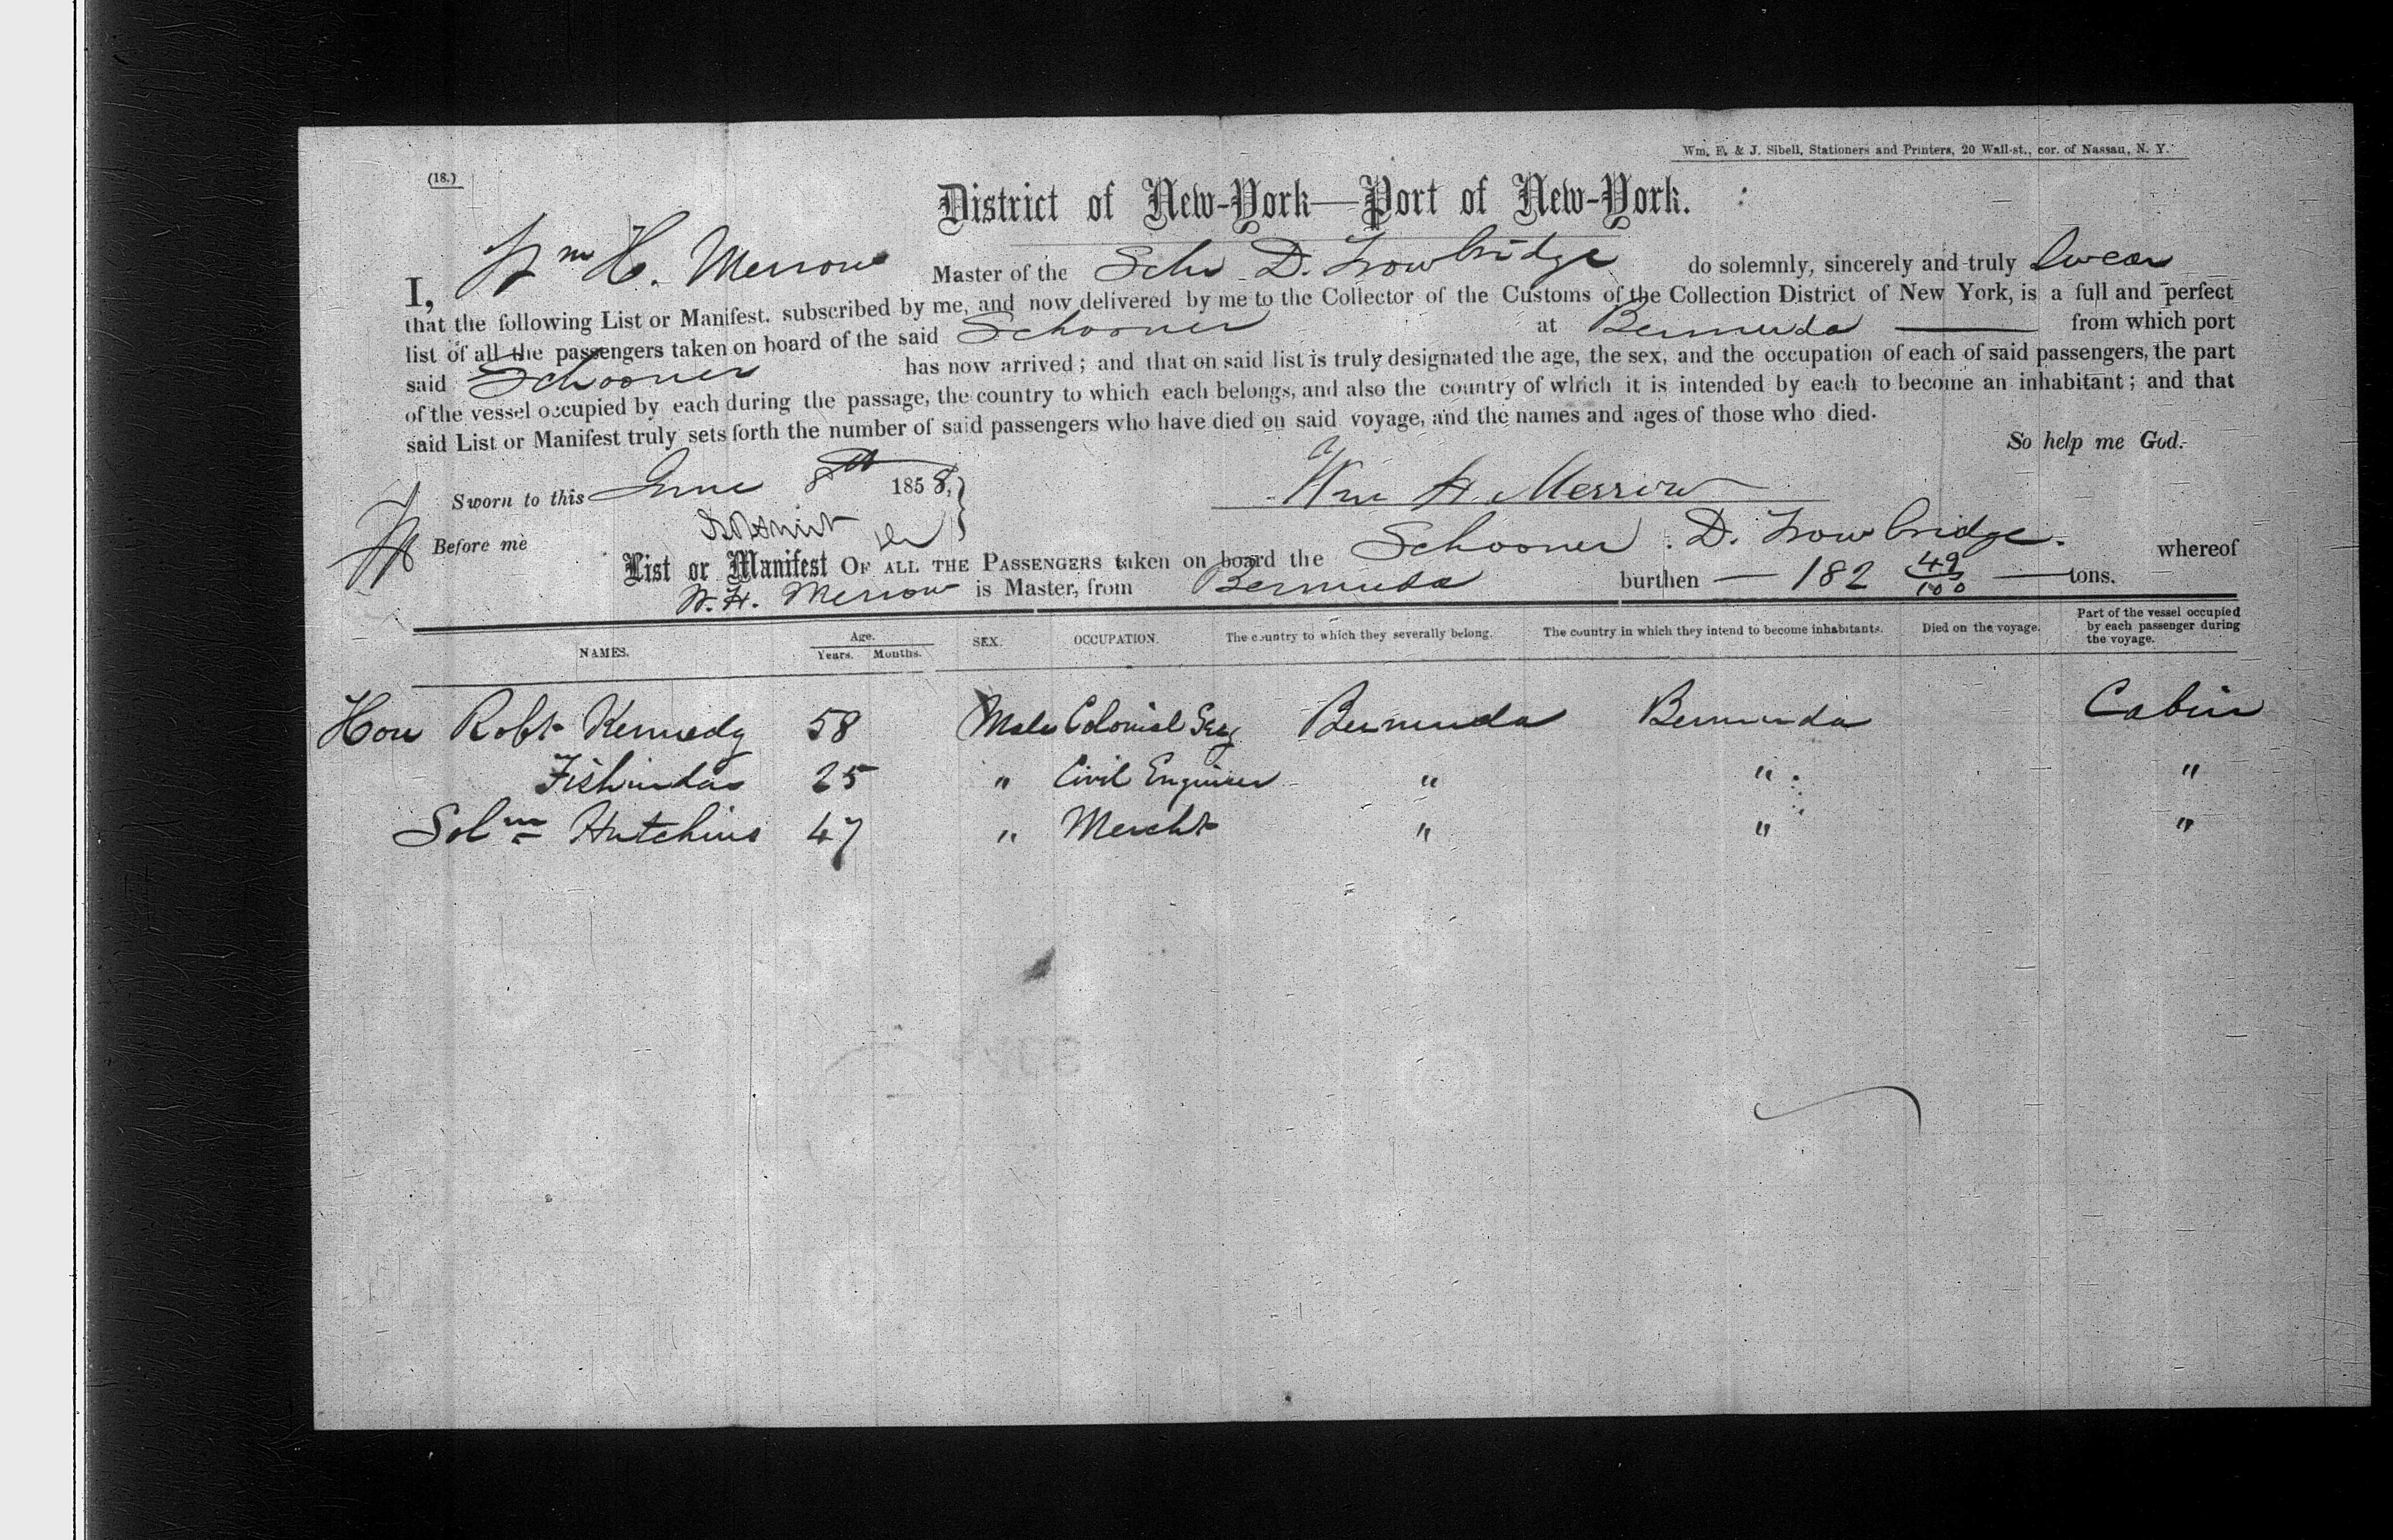 Wm. E. & J. Sibell, Stationers and Printers, 20 Wall-st., cor. of Nassau, N. Y.
(18.)
District of New-York—Port of New-York.
I, Wm H. Merrow Master of the Schr D. Trowbridge do solemnly, sincerely and truly Swear
that the following List or Manifest. subscribed by me, and now delivered by me to the Collector of the Customs of the Collection District of New York, is a full and perfect
list of all the passengers taken on board of the said Schooner at Bermuda from which port
said Schooner has now arrived; and that on said list is truly designated the age, the sex, and the occupation of each of said passengers, the part
of the vessel occupied by each during the passage, the country to which each belongs, and also the country of which it is intended by each to become an inhabitant; and that
said List or Manifest truly sets forth the number of said passengers who have died on said voyage, and the names and ages of those who died.
So help me God.
Sworn to this June 8th 1858, Wm H. Merrow
Before me
List or Manifest OF ALL THE PASSENGERS taken on board the Schooner D. Trowbridge. whereof
W. H. Merrow is Master, from Bermuda burthen — 182 49/100 — tons.
NAMES. Age. Years. Months. SEX. OCCUPATION. The country to which they severally belong. The country in which they intend to become inhabitants. Died on the voyage. Part of the vessel occupied by each passenger during the voyage.
Hon Robt Kennedy 58 Male Colonial Secy Bermuda Bermuda Cabin
25 " Civil Engineer " " "
Solmn Hutchins 47 " Mercht " " "